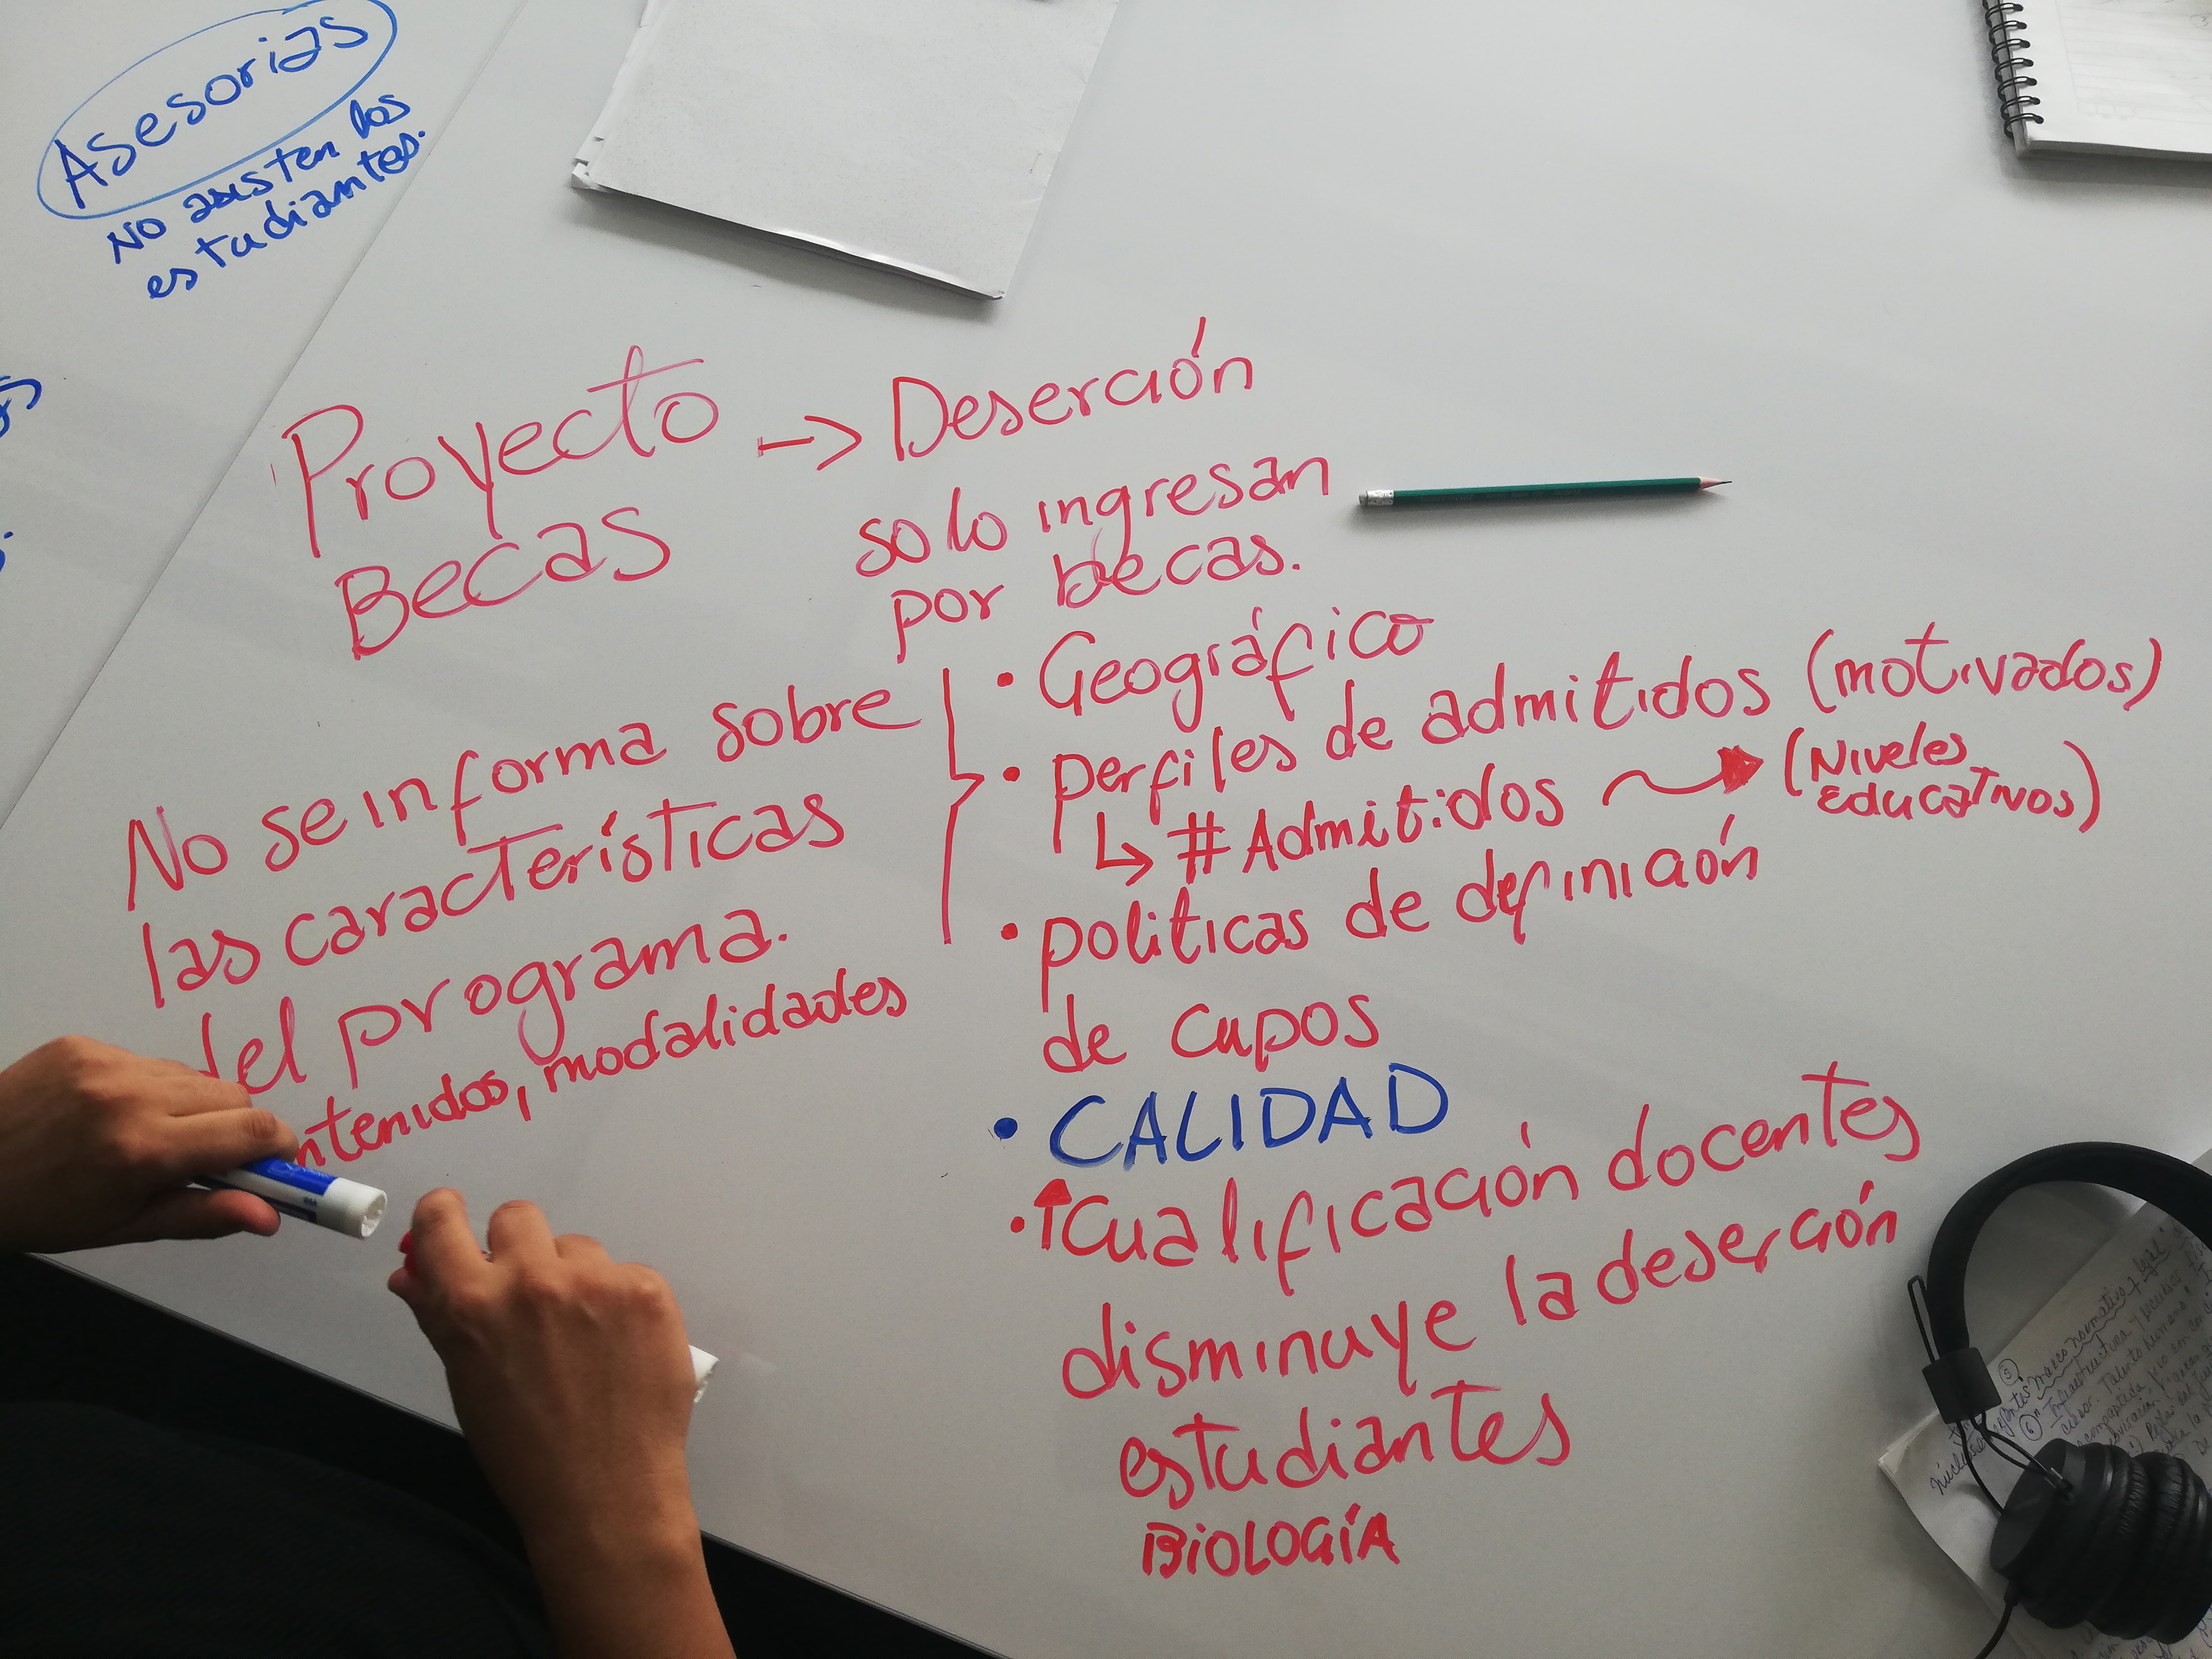 Asesorias
No asisten los
estudiantes.
Proyecto → Deserción
Becas
solo ingresan
por becas.
No se informa sobre
las características
del programa.
ntenidos, modalidades
• Geográfico
• perfiles de admitidos (motivados)
↳ # Admitidos → (Niveles
Educativos)
• politicas de definición
de cupos
• CALIDAD
• ↑ Cualificación docentes
disminuye la deserción
estudiantes
BIOLOGÍA
marco normativo y legal